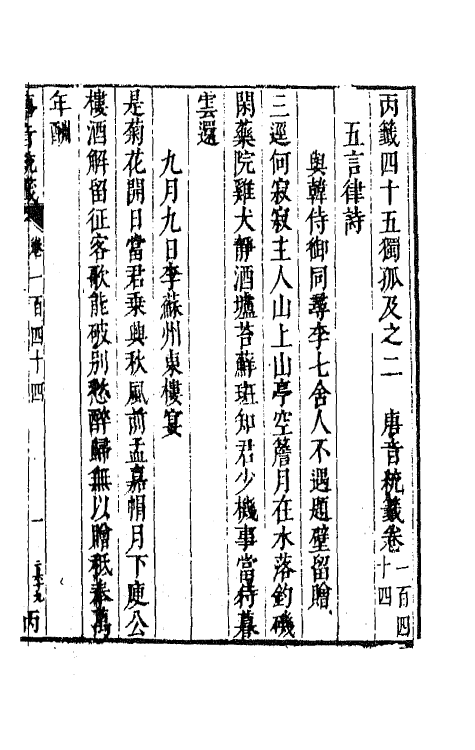 丙籤四十五獨孤及之二　唐音統籤卷一百四十四
五言律詩
與韓侍御同尋李七舍人不遇題壁留贈
三逕何寂寂主人山上山亭空簷月在水落釣磯
閑藥院雞犬靜酒壚苔蘚班知君少機事當待暮
雲還
九月九日李蘇州東樓宴
是菊花開日當君乗興秋風前孟嘉帽月下庾公
樓酒解留征客歌能破别愁醉歸無以贈秖奉萬
年酬
唐音統籤 卷一百四十四 一 丙